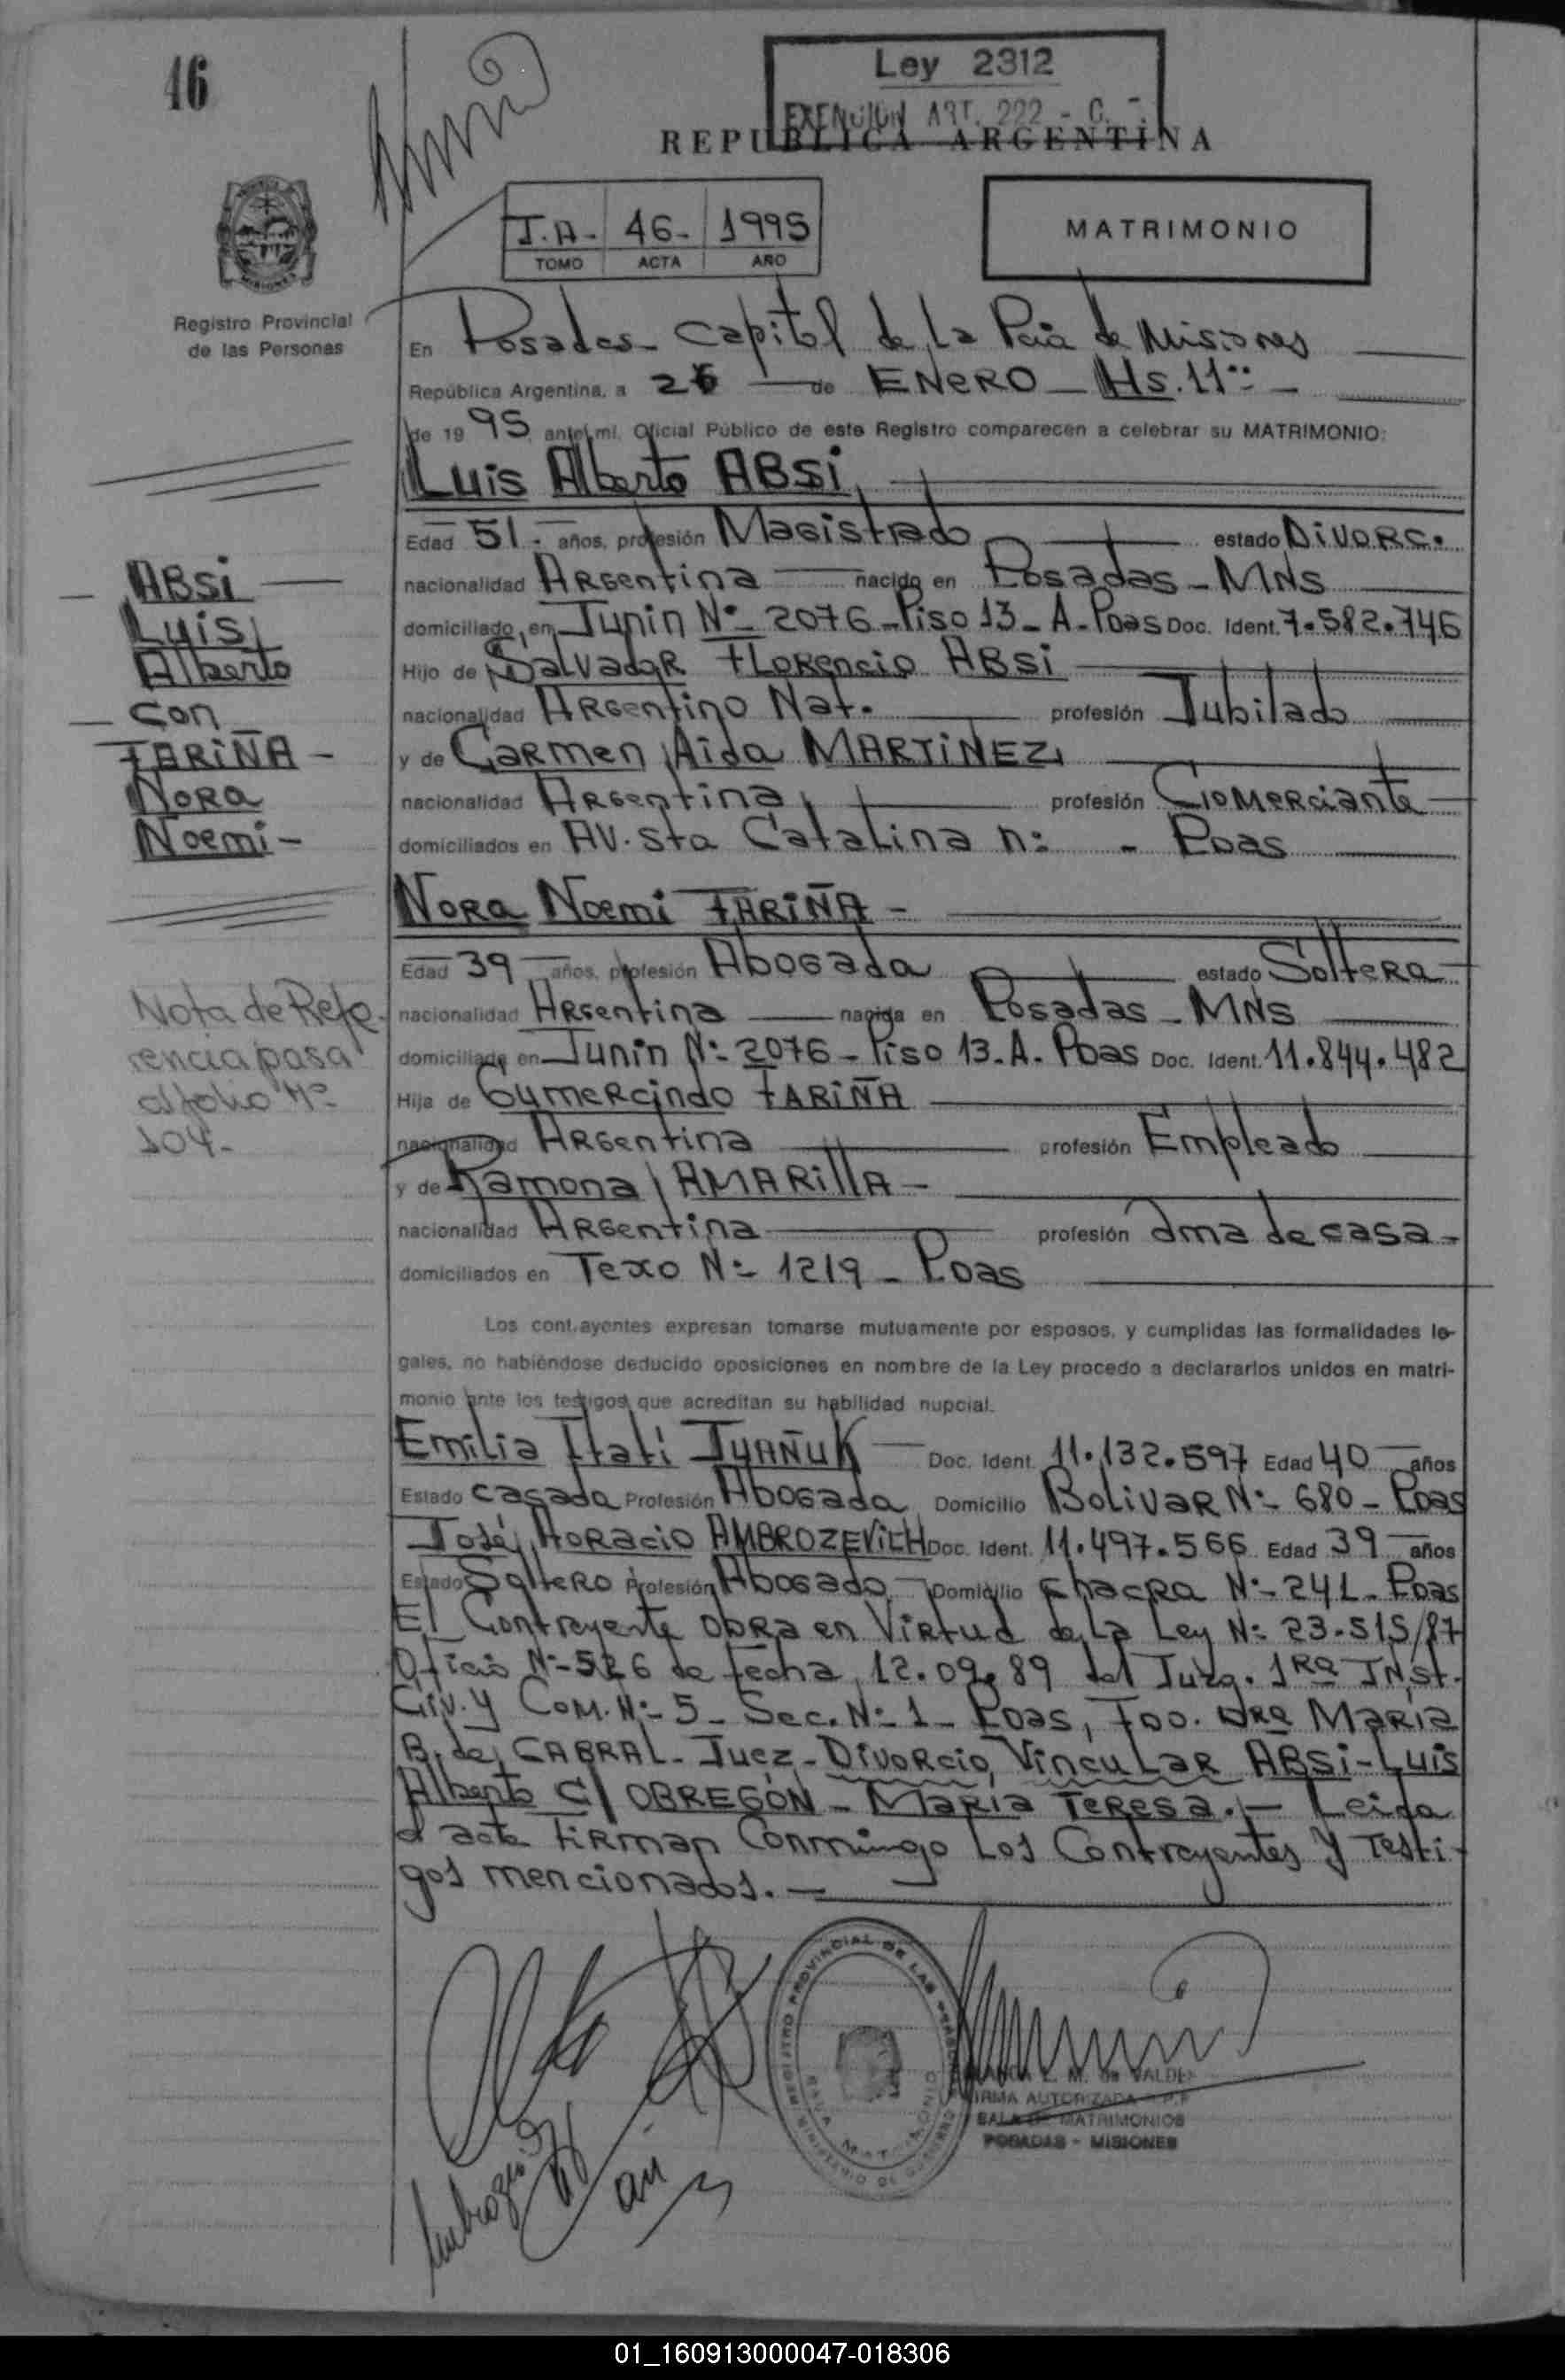 46
Ley 2312
EXENCION ART. 222 - C.
REPUBLICA ARGENTINA
T.A- 46- 1995
TOMO ACTA AÑO
MATRIMONIO
Registro Provincial
de las Personas
En Posadas- Capital de La Pcia de Misiones
República Argentina, a 26 de ENERO - Hs. 11
de 1995, ante mi, Oficial Público de este Registro comparecen a celebrar su MATRIMONIO:
Luis Alberto ABSi
Edad 51- años, profesión Magistrado estado DivoRc.
nacionalidad Argentina nacido en Posadas - MNS
domiciliado en Junin Nº 2076 - Piso 13 - A - Poas Doc. Ident. 7.582.746
Hijo de Salvador Florencio ABSi
nacionalidad Argentino Nat. profesión Jubilado
y de Carmen Aida MARTiNEZ
nacionalidad Argentina profesión Comerciante
domiciliados en AV. Sta Catalina n: - Poas
ABSi
Luis
Alberto
- con
FARiÑA -
Nora
Noemi -
Nora Noemi FARiÑA -
Edad 39 años, profesión Abogada estado Soltera
nacionalidad Argentina nacida en Posadas - MNS
domiciliada en Junin Nº 2076 - Piso 13 - A. Poas Doc. Ident. 11.844.482
Hija de Gumercindo FARiÑA
nacionalidad Argentina profesión Empleado
y de Ramona AMARillA -
nacionalidad Argentina profesión Ama de casa -
domiciliados en Texo Nº 1219 - Poas
Nota de Refe-
rencia pasa
al folio Nº
104-
Los contrayentes expresan tomarse mutuamente por esposos, y cumplidas las formalidades le-
gales, no habiéndose deducido oposiciones en nombre de la Ley procedo a declararlos unidos en matri-
monio ante los testigos que acreditan su habilidad nupcial.
Emilia Itati JUAÑUK Doc. Ident. 11.132.597 Edad 40 años
Estado casada Profesión Abogada Domicilio Bolivar Nº 680 - Poas
José Horacio AMBROZEVICH Doc. Ident. 11.497.566 Edad 39 años
Estado Soltero Profesión Abogado Domicilio Chacra Nº 241 - Poas
El Contrayente obra en Virtud de La Ley Nº 23.515/87
Oficio Nº 526 de fecha 12.09.89 del Juzg. 1Ra INst.
Civ. y Com. Nº 5 - Sec. Nº 1 - Poas, Fdo. DRa Maria
B. de CABRAL - Juez - Divorcio Vincular ABSi - Luis
Alberto C/ OBREGÓN - Maria Teresa. - Leida
el acta firman Conmingo Los Contrayentes y Testi-
gos mencionados. -
REGISTRO PROVINCIAL DE LAS PERSONAS
MINISTERIO DE GOBIERNO
SALA MATRIMONIO
L. M. de VALDE
FIRMA AUTORIZADA R.P.P
SALA DE MATRIMONIOS
POSADAS - MISIONES
01_160913000047-018306